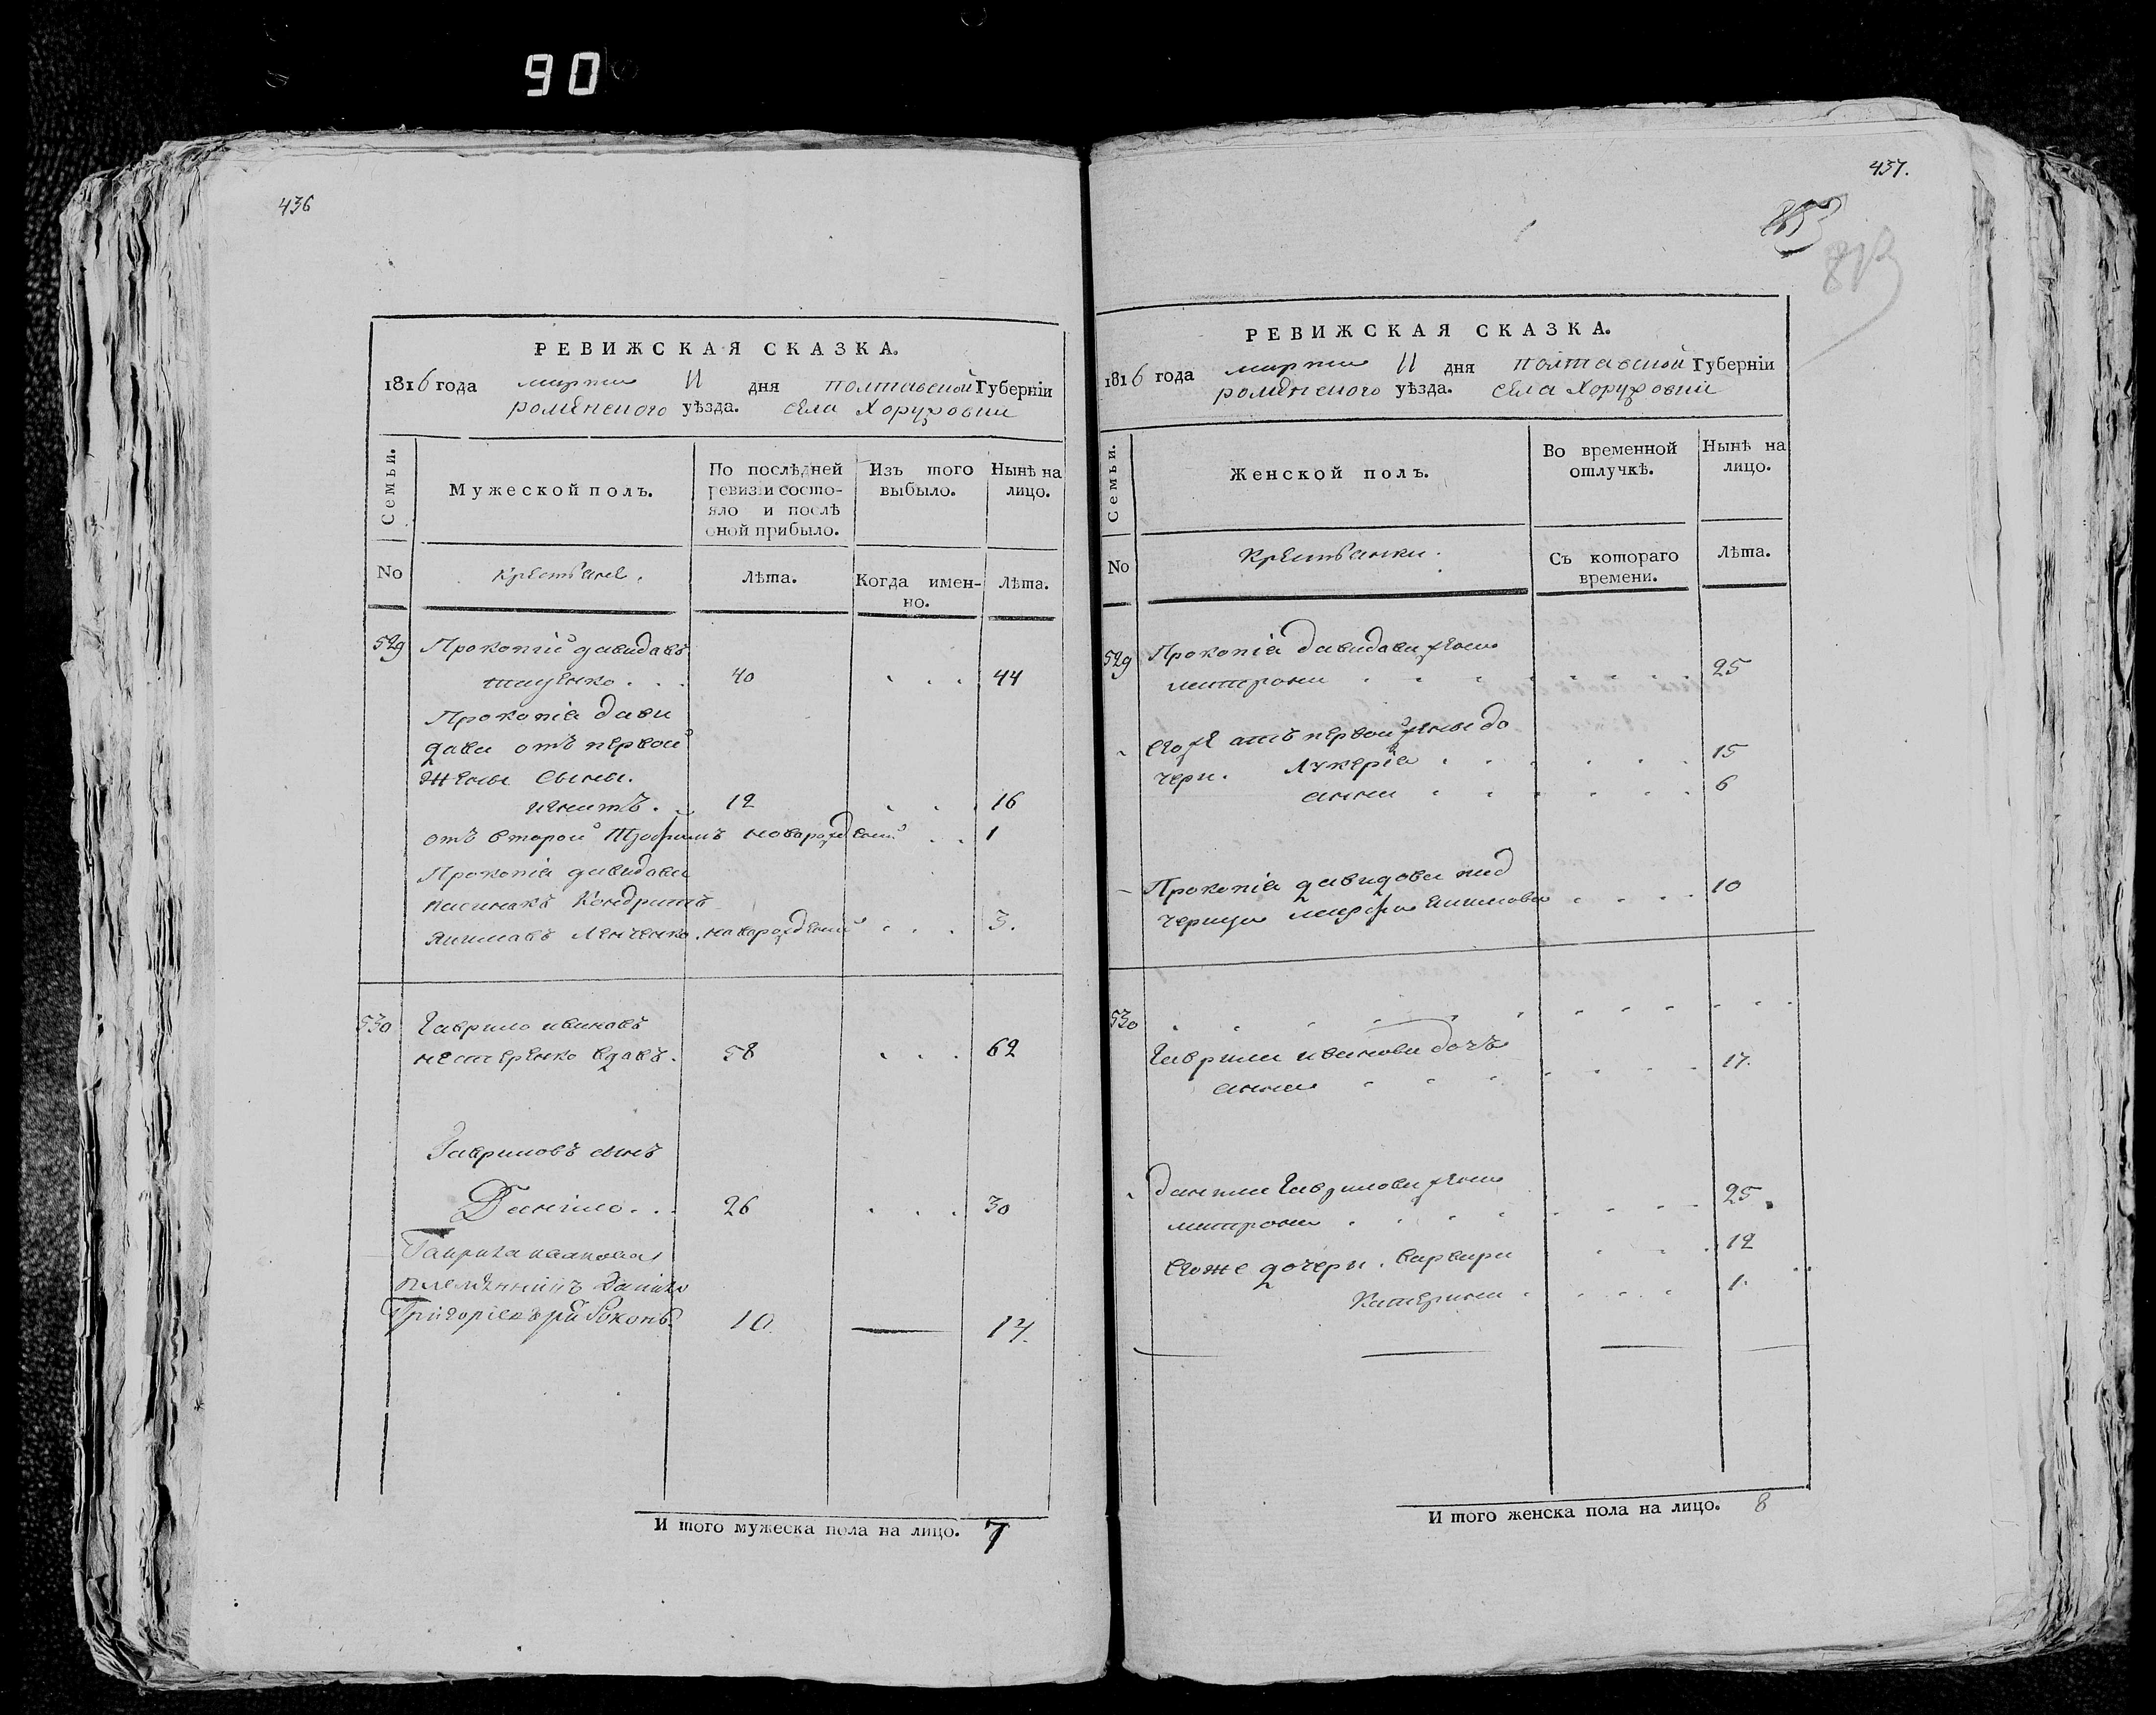 90
436
РЕВИЖСКАЯ СКАЗКА.
1816 года марта 11 дня полтавской Губерніи
роменского уѣзда. села Хоружовки
Семьи.
Мужеской полъ.
По послѣдней ревизіи состо-
яло и послѣ
оной прибыло.
Изъ того
выбыло.
Нынѣ на
лицо.
No
Крестьяне.
Лѣта.
Когда имен-
но.
Лѣта.
529 Прокопій давидовъ
40 44
Прокопія дави
дова отъ первой
жены сыны.
игнатъ. 12 16
отъ второй новорожденый 1
Прокопія давидова
пасинокъ Кондратъ
новорожденый 3.
530 Гаврило ивановъ
нестеренко вдовъ. 58 62
Гавриловъ сынъ
Даніило. 26 30
Гаврила иванова
племянникъ Данило
Григоріевъ 10. 14.
И того мужеска пола на лицо. 7
437.
853
РЕВИЖСКАЯ СКАЗКА.
1816 года марта 11 дня полтавской Губерніи
роменского уѣзда. села Хоружовки
Семьи.
Женской полъ.
Во временной
отлучкѣ.
Нынѣ на
лицо.
No
Крестьянки.
Съ котораго
времени.
Лѣта.
529 Прокопія давидова жена
матрона 25
его же отъ первой жены до
чери. Лукерія 15
анна 6
Прокопія давидова пад
черица марфа 10
530
Гаврила иванова дочъ
анна 17.
данила Гаврилова жена
матрона 25
его же дочери. варвара 12
Катерина 1.
И того женска пола на лицо. 8